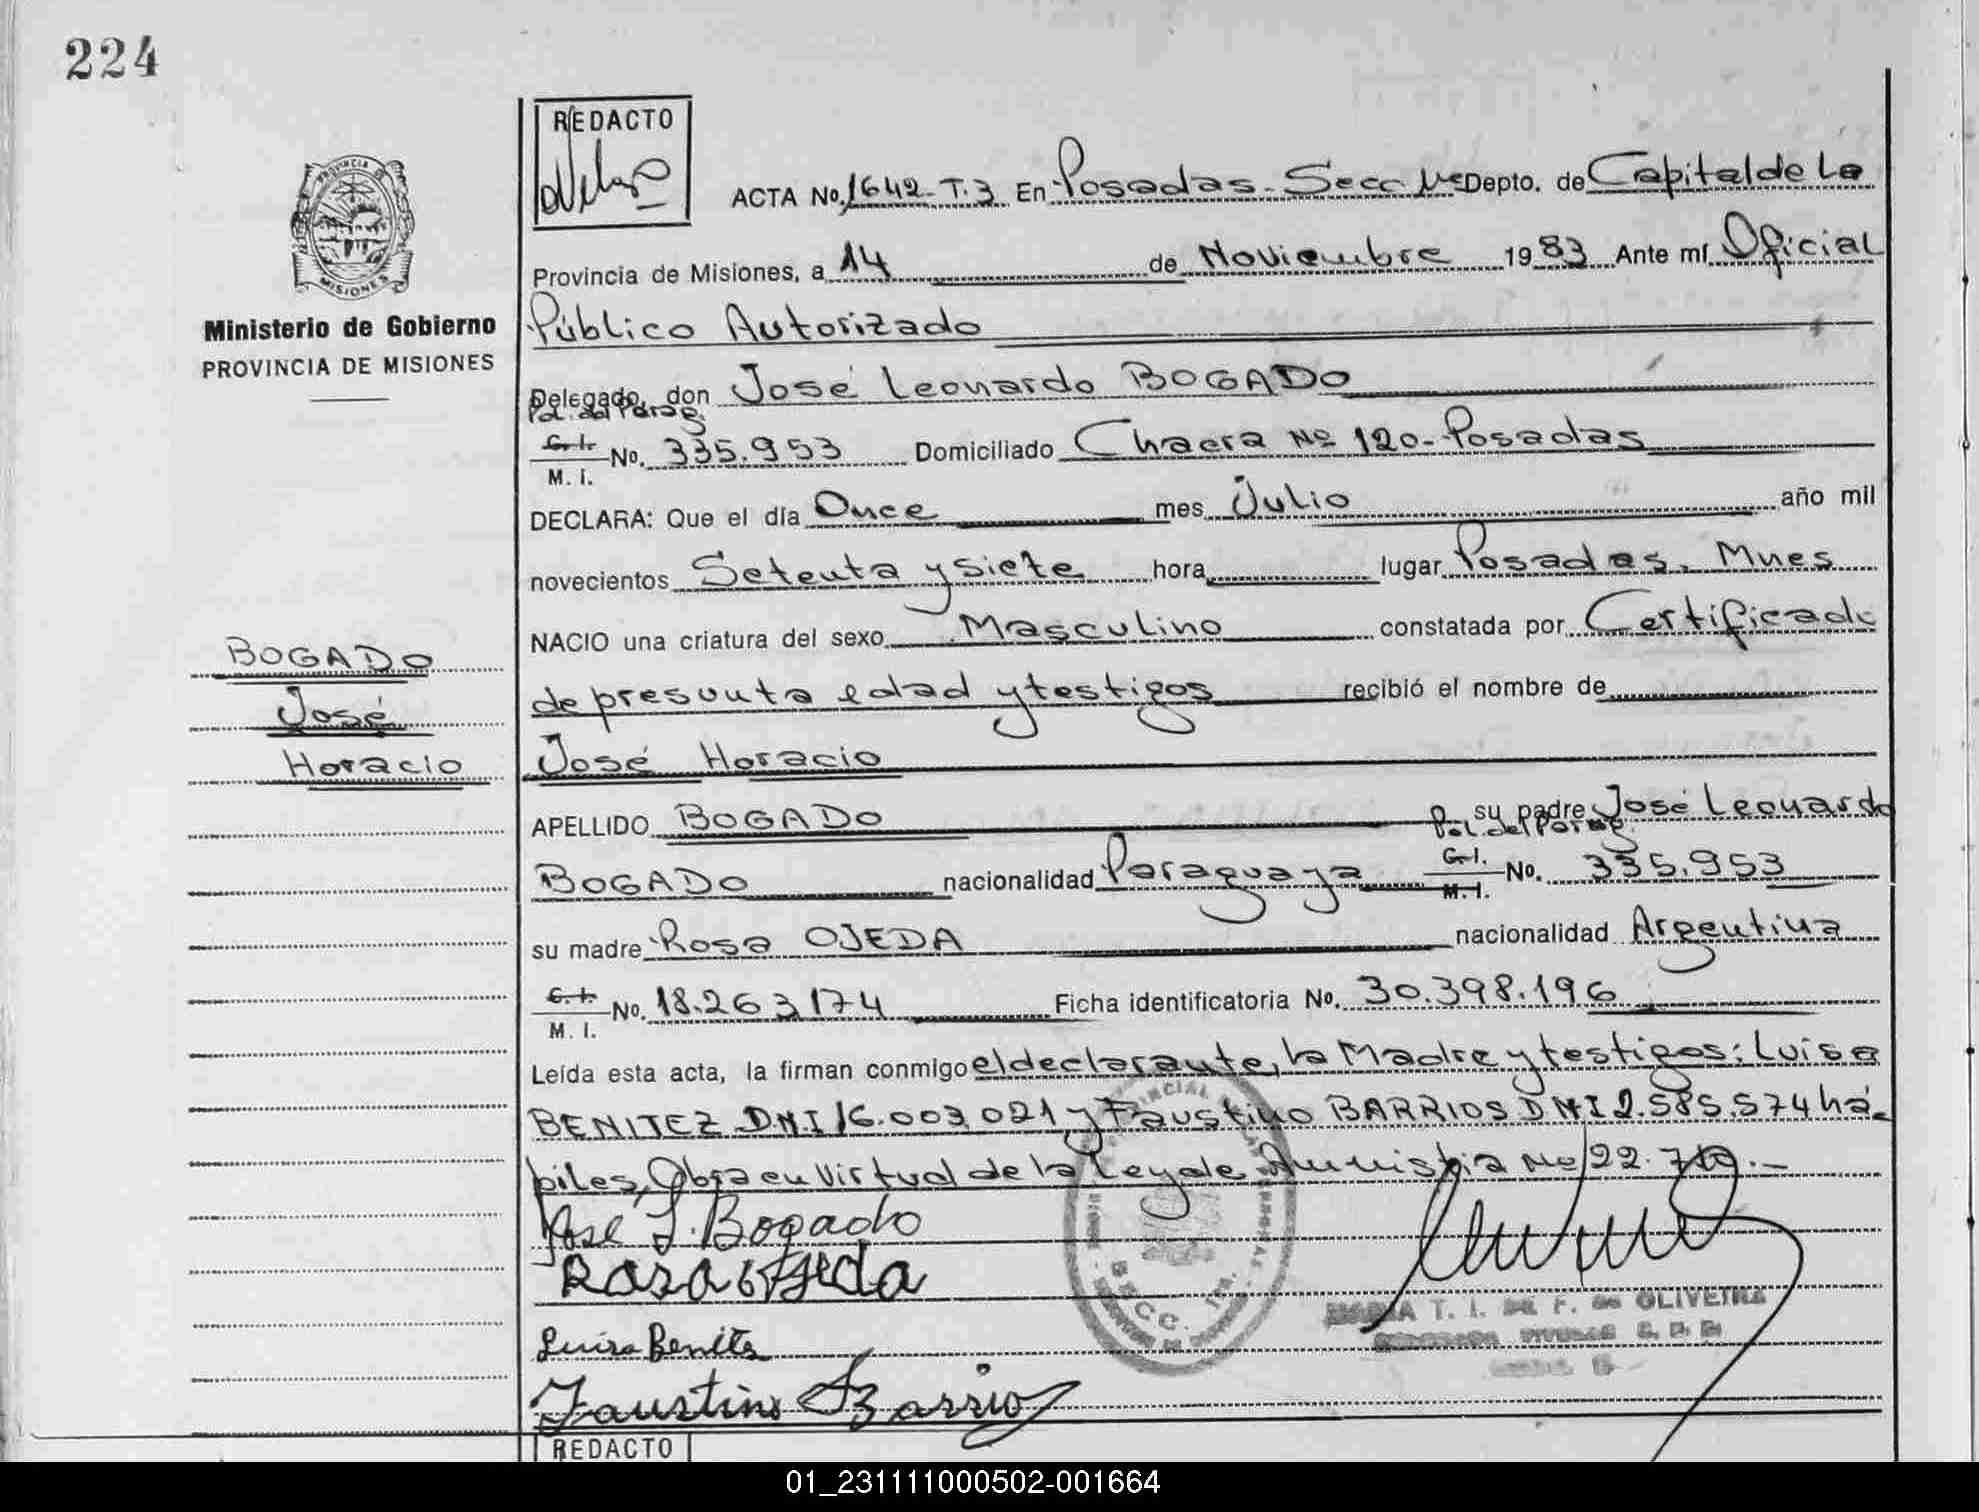 224
REDACTO
ACTA No. 1642-T.3 En Posadas-Secc 1ª Depto. de Capital de La
Provincia de Misiones, a 14 de Noviembre 1983 Ante mí Oficial
Público Autorizado
Delegado, don José Leonardo BOGADO
Pol. del Parag.
C. I.
M. I.
No. 335.953 Domiciliado Chacra Nº 120-Posadas
DECLARA: Que el día Once mes Julio año mil
novecientos Setenta y siete hora lugar Posadas. Mnes
NACIO una criatura del sexo Masculino constatada por Certificado
de presunta edad y testigos recibió el nombre de
José Horacio
APELLIDO BOGADO su padre José Leonardo
Pol. del Parag.
BOGADO nacionalidad Paraguaya C. I. No. 335.953
M. I.
su madre Rosa OJEDA nacionalidad Argentina
C. I.
M. I.
No. 18.263.174 Ficha identificatoria No. 30.398.196
Leída esta acta, la firman conmigo el declarante, la Madre y testigos: Luisa
BENITEZ D.N.I 16.003.021 y Faustino BARRIOS D.N.I 2.585.574 há-
biles, Obra en Virtud de la Ley de Amnistia Nº 22.710.-
José L. Bogado
Rosa Ojeda
Luisa Benites
Faustino Barrios
SECC. 1ra.
T. I. DE F. de OLIVEIRA
REDACTO
Ministerio de Gobierno
PROVINCIA DE MISIONES
PROVINCIA DE
MISIONES
BOGADO
José
Horacio
01_231111000502-001664